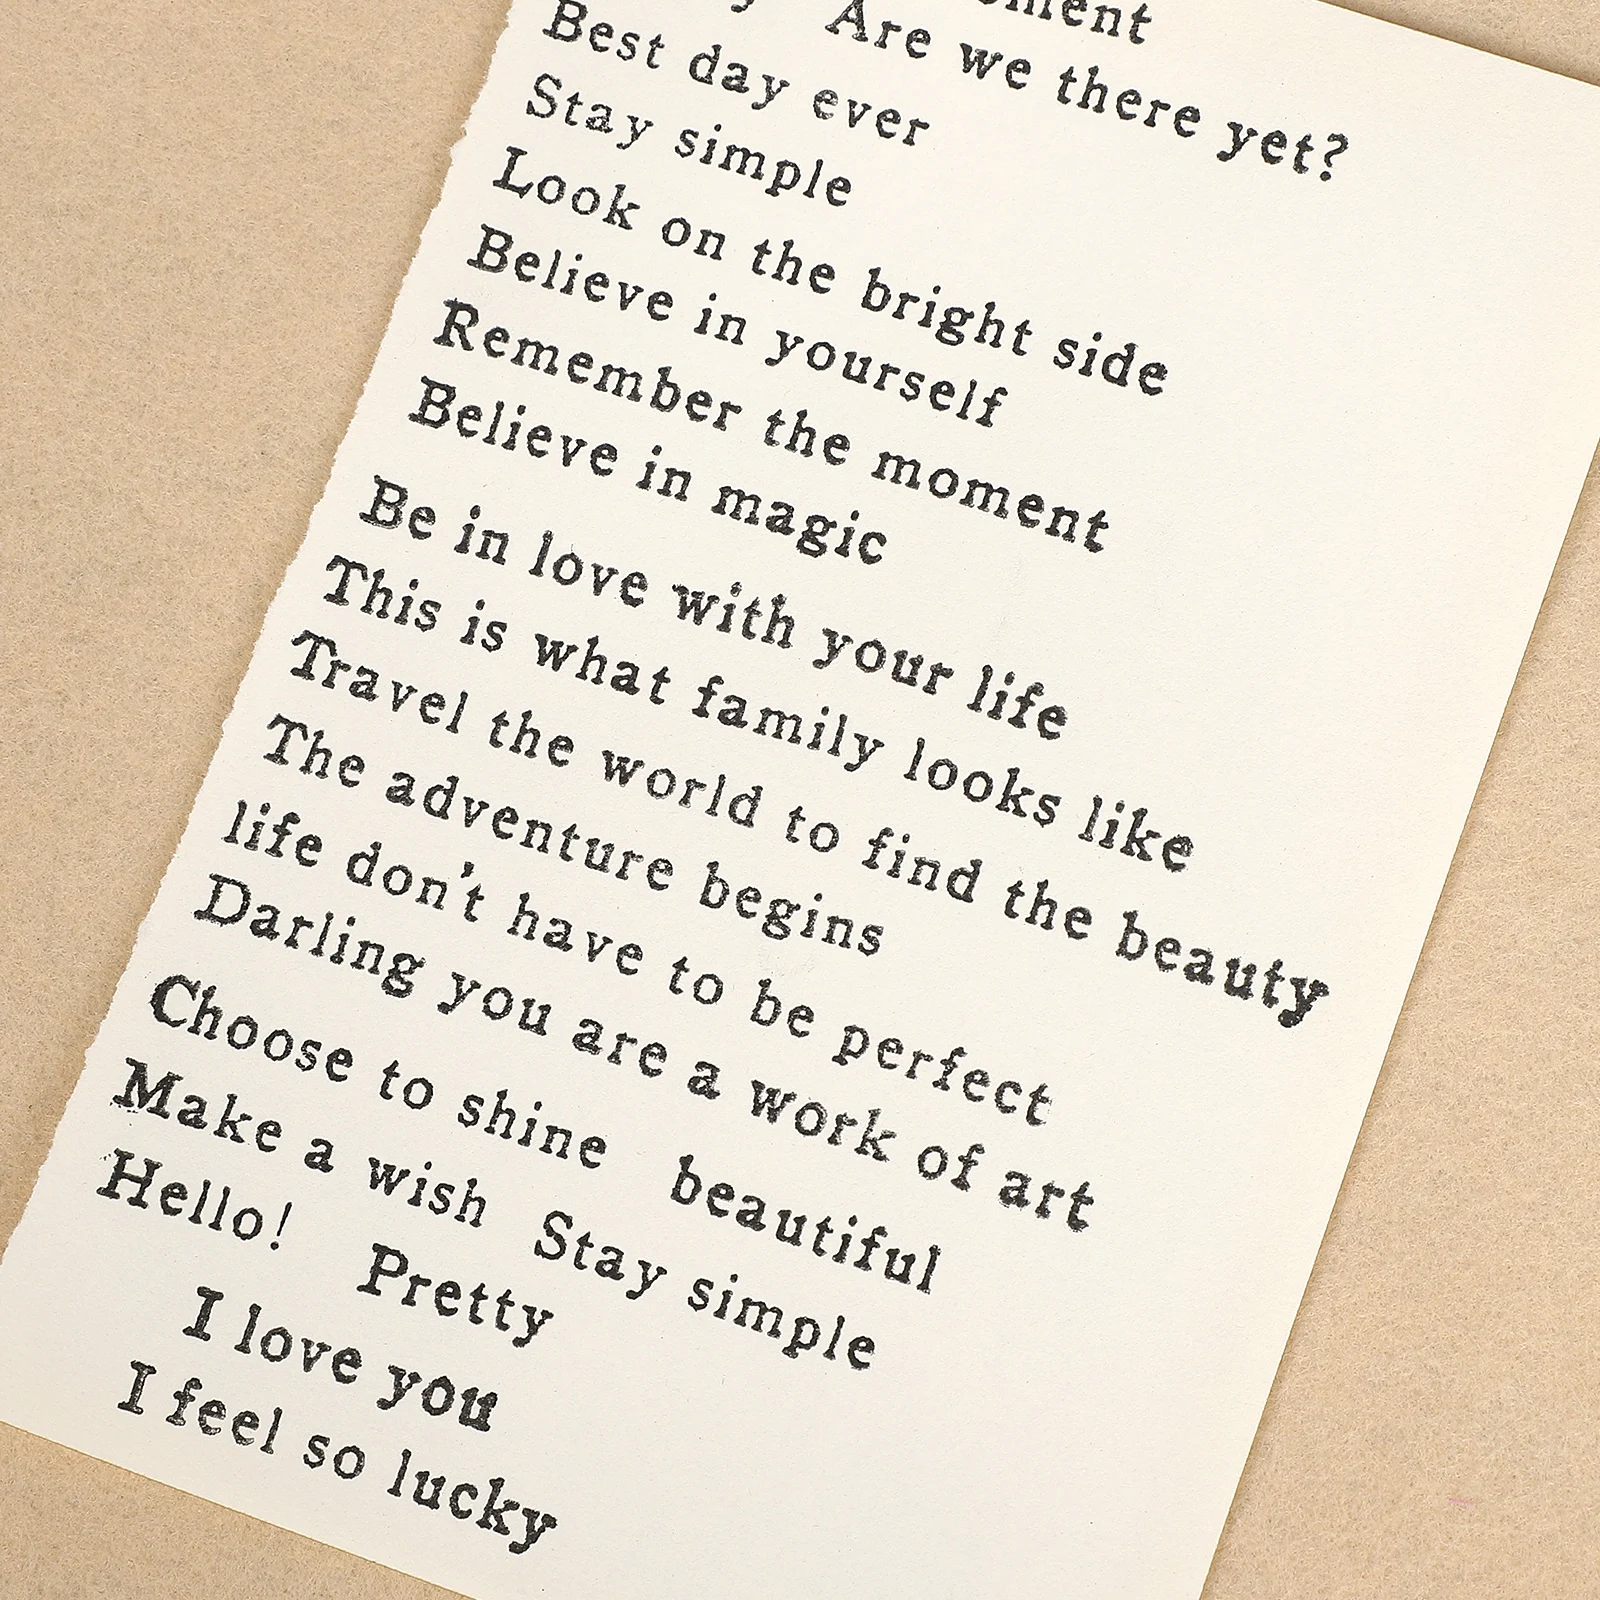 Are we there yet?
Best day ever
Stay simple
Look on the bright side
Believe in yourself
Remember the moment
Believe in magic
Be in love with your life
This is what family looks like
Travel the world to find the beauty
The adventure begins
life don't have to be perfect
Darling you are a work of art
Choose to shine beautiful
Make a wish Stay simple
Hello! Pretty
I love you
I feel so lucky